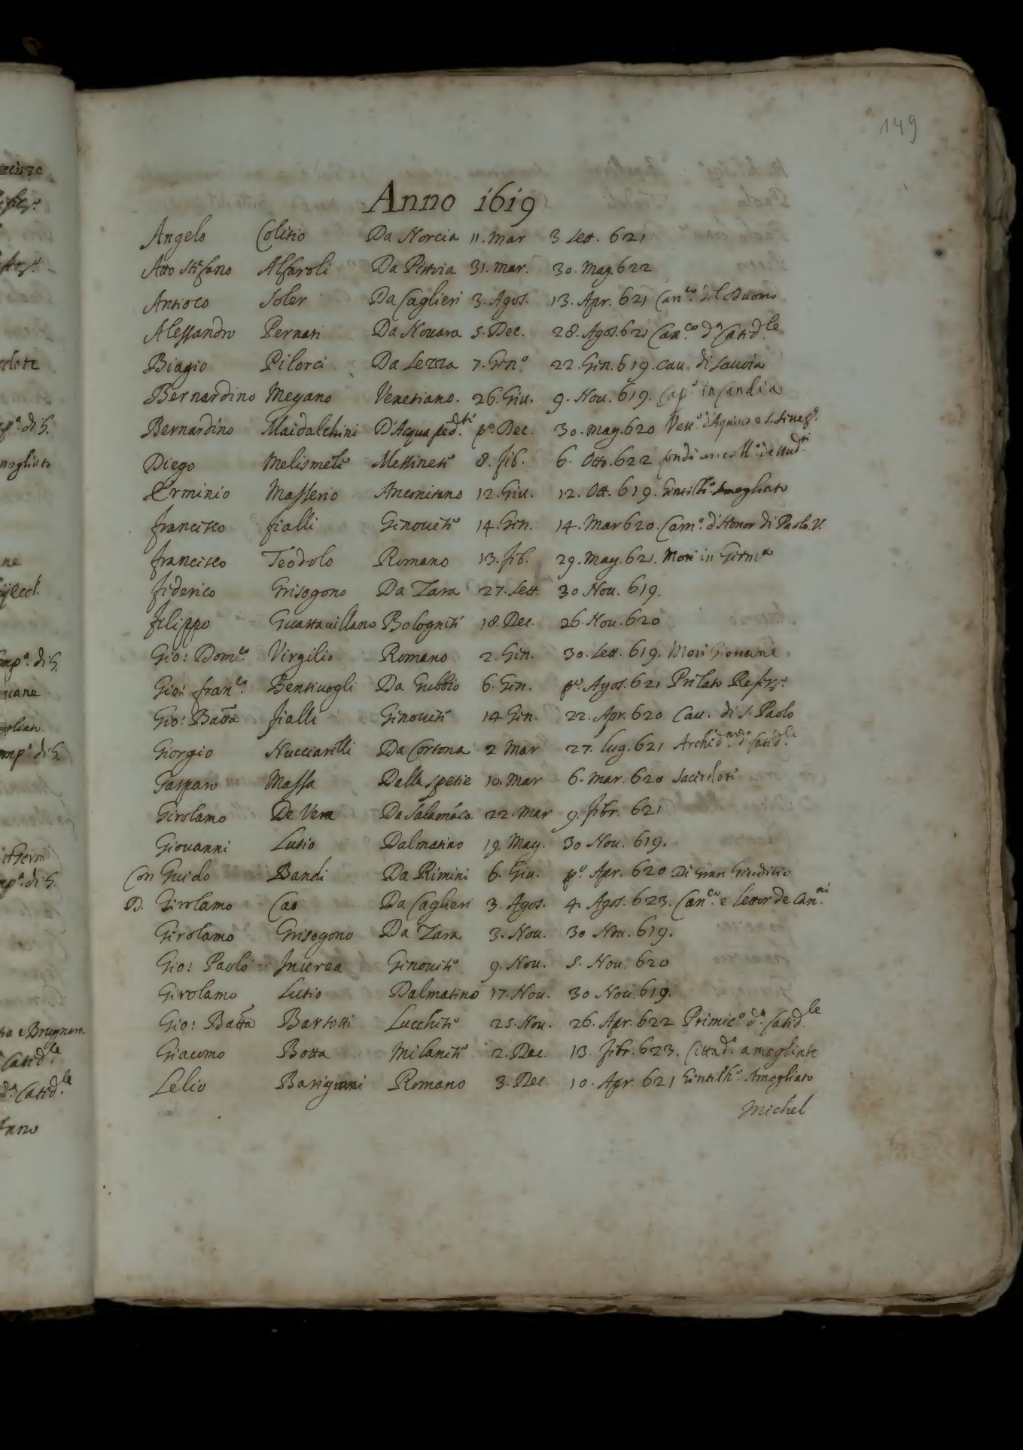 149
Anno 1619
Angelo Colitio Da Norcia 11. Mar 3. Sett. 621
Atto Stefano Alfaroli Da Pistoia 31. mar. 30. Mag. 622
Antioco Soler Da Caglieri 3. Agos. 13. Apr. 621 Can.co del Duomo
Alessandro Pernati Da Nouara 5. Dec. 28. Agos. 621 Can.co d.a Catted.le
Biagio Pilorci Da Sezza 7. Gen.o 22. Gen. 619. cau. di Sauoia
Bernardino Megano Venetiano. 26. Giu. 9. Nou. 619. Cap.o in Candia
Bernardino Maidalchini D'Acqua ped.te p.o Dec. 30. may. 620 Vesc.o d'Aquino
Diego Melismele Messinese 8. feb. 6. Otto. 622
Erminio Masserio Anconitano 12. Giu. 12. Ott. 619. Gentilh.o Amogliato
francesco fialli Genouese 14. Gen. 14. Mar 620. Cam.o d'Honor di Paolo V.
francesco Teodolo Romano 13. feb. 29. may. 621. Morì in Germ.a
federico Grisogono Da Zara 27. Sett. 30 Nou. 619.
filippo Guastauillano Bolognese 18. Dec. 26. Nou. 620
Gio: Dom.co Virgilio Romano 2. Gen. 30. Sett. 619. Morì Giouane
Gio: fran.co Bentiuogli Da Gubbio 6. Gen. p.o Agos. 621 Prelato Refer.o
Gio: Batta fialli Genouese 14 Gen. 22. Apr. 620 Cau. di S. Paolo
Giorgio Nucciarelli Da Cortona 2 Mar 27. lug. 621 Archid.no d.a Catted.le
Gasparo Massa Dalla Spetie 10. Mar 6. Mar. 620 Sacerdote
Girolamo De Vera Da Salamáca 22. Mar 9. febr. 621
Giouanni Lutio Dalmatino 19. May. 30 Nou. 619.
Con Guido Bandi Da Rimini 6. Giu. p.o Apr. 620 Di Gran Giuditio
D. Girolamo Cao Da Caglieri 3. Agos. 4. Agos. 623. Can.co e lettor de Can.ni
Girolamo Grisogono Da Zara 3. Nou. 30 Nou. 619.
Gio: Paolo Inurea Genouese 9. Nou. 5. Nou. 620
Girolamo Lutio Dalmatino 17. Nou. 30 Nou 619.
Gio: Batta Bartotti Lucchese 25. Nou. 26. Apr. 622 Primic.o d.a Catted.le
Giacomo Botta Milanese 2. Dec. 13. febr. 623. Cittad.o amogliato
Lelio Barignani Romano 3. Dec. 10. Apr. 621 Gentilh.o Amogliato
Michel